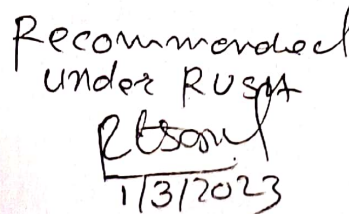 Recommended
under RUSA
1/3/2023